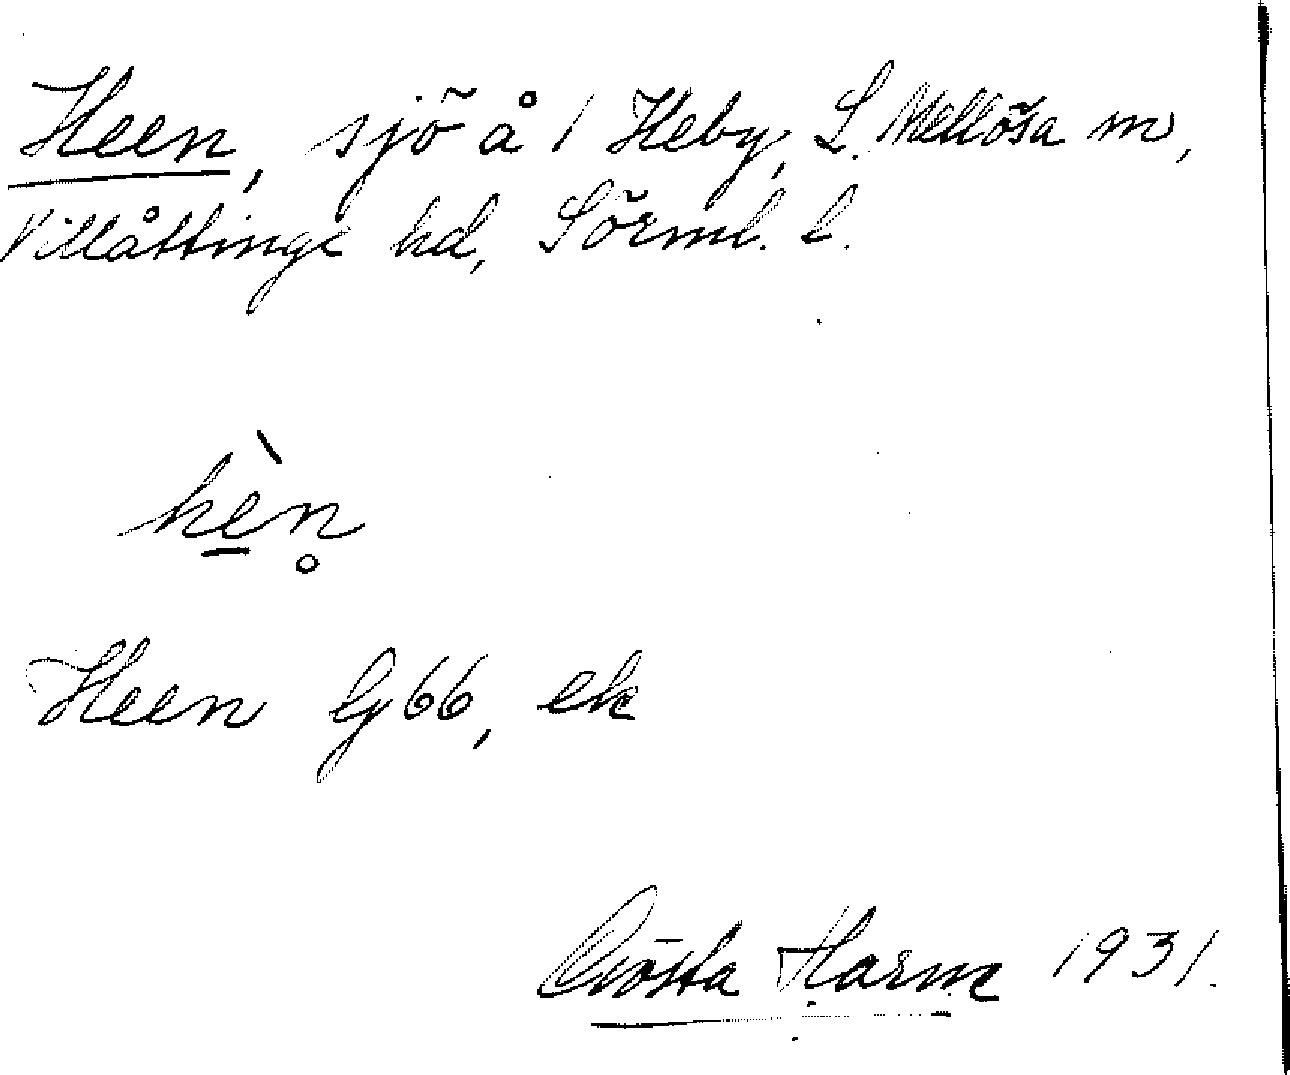 Heen, sjö å 1 Heby, L. Mellösa sn,
Villåttinge hd, Sörml. l.
hèn̥
Heen Gj66, ek
Gösta Harm 1931.